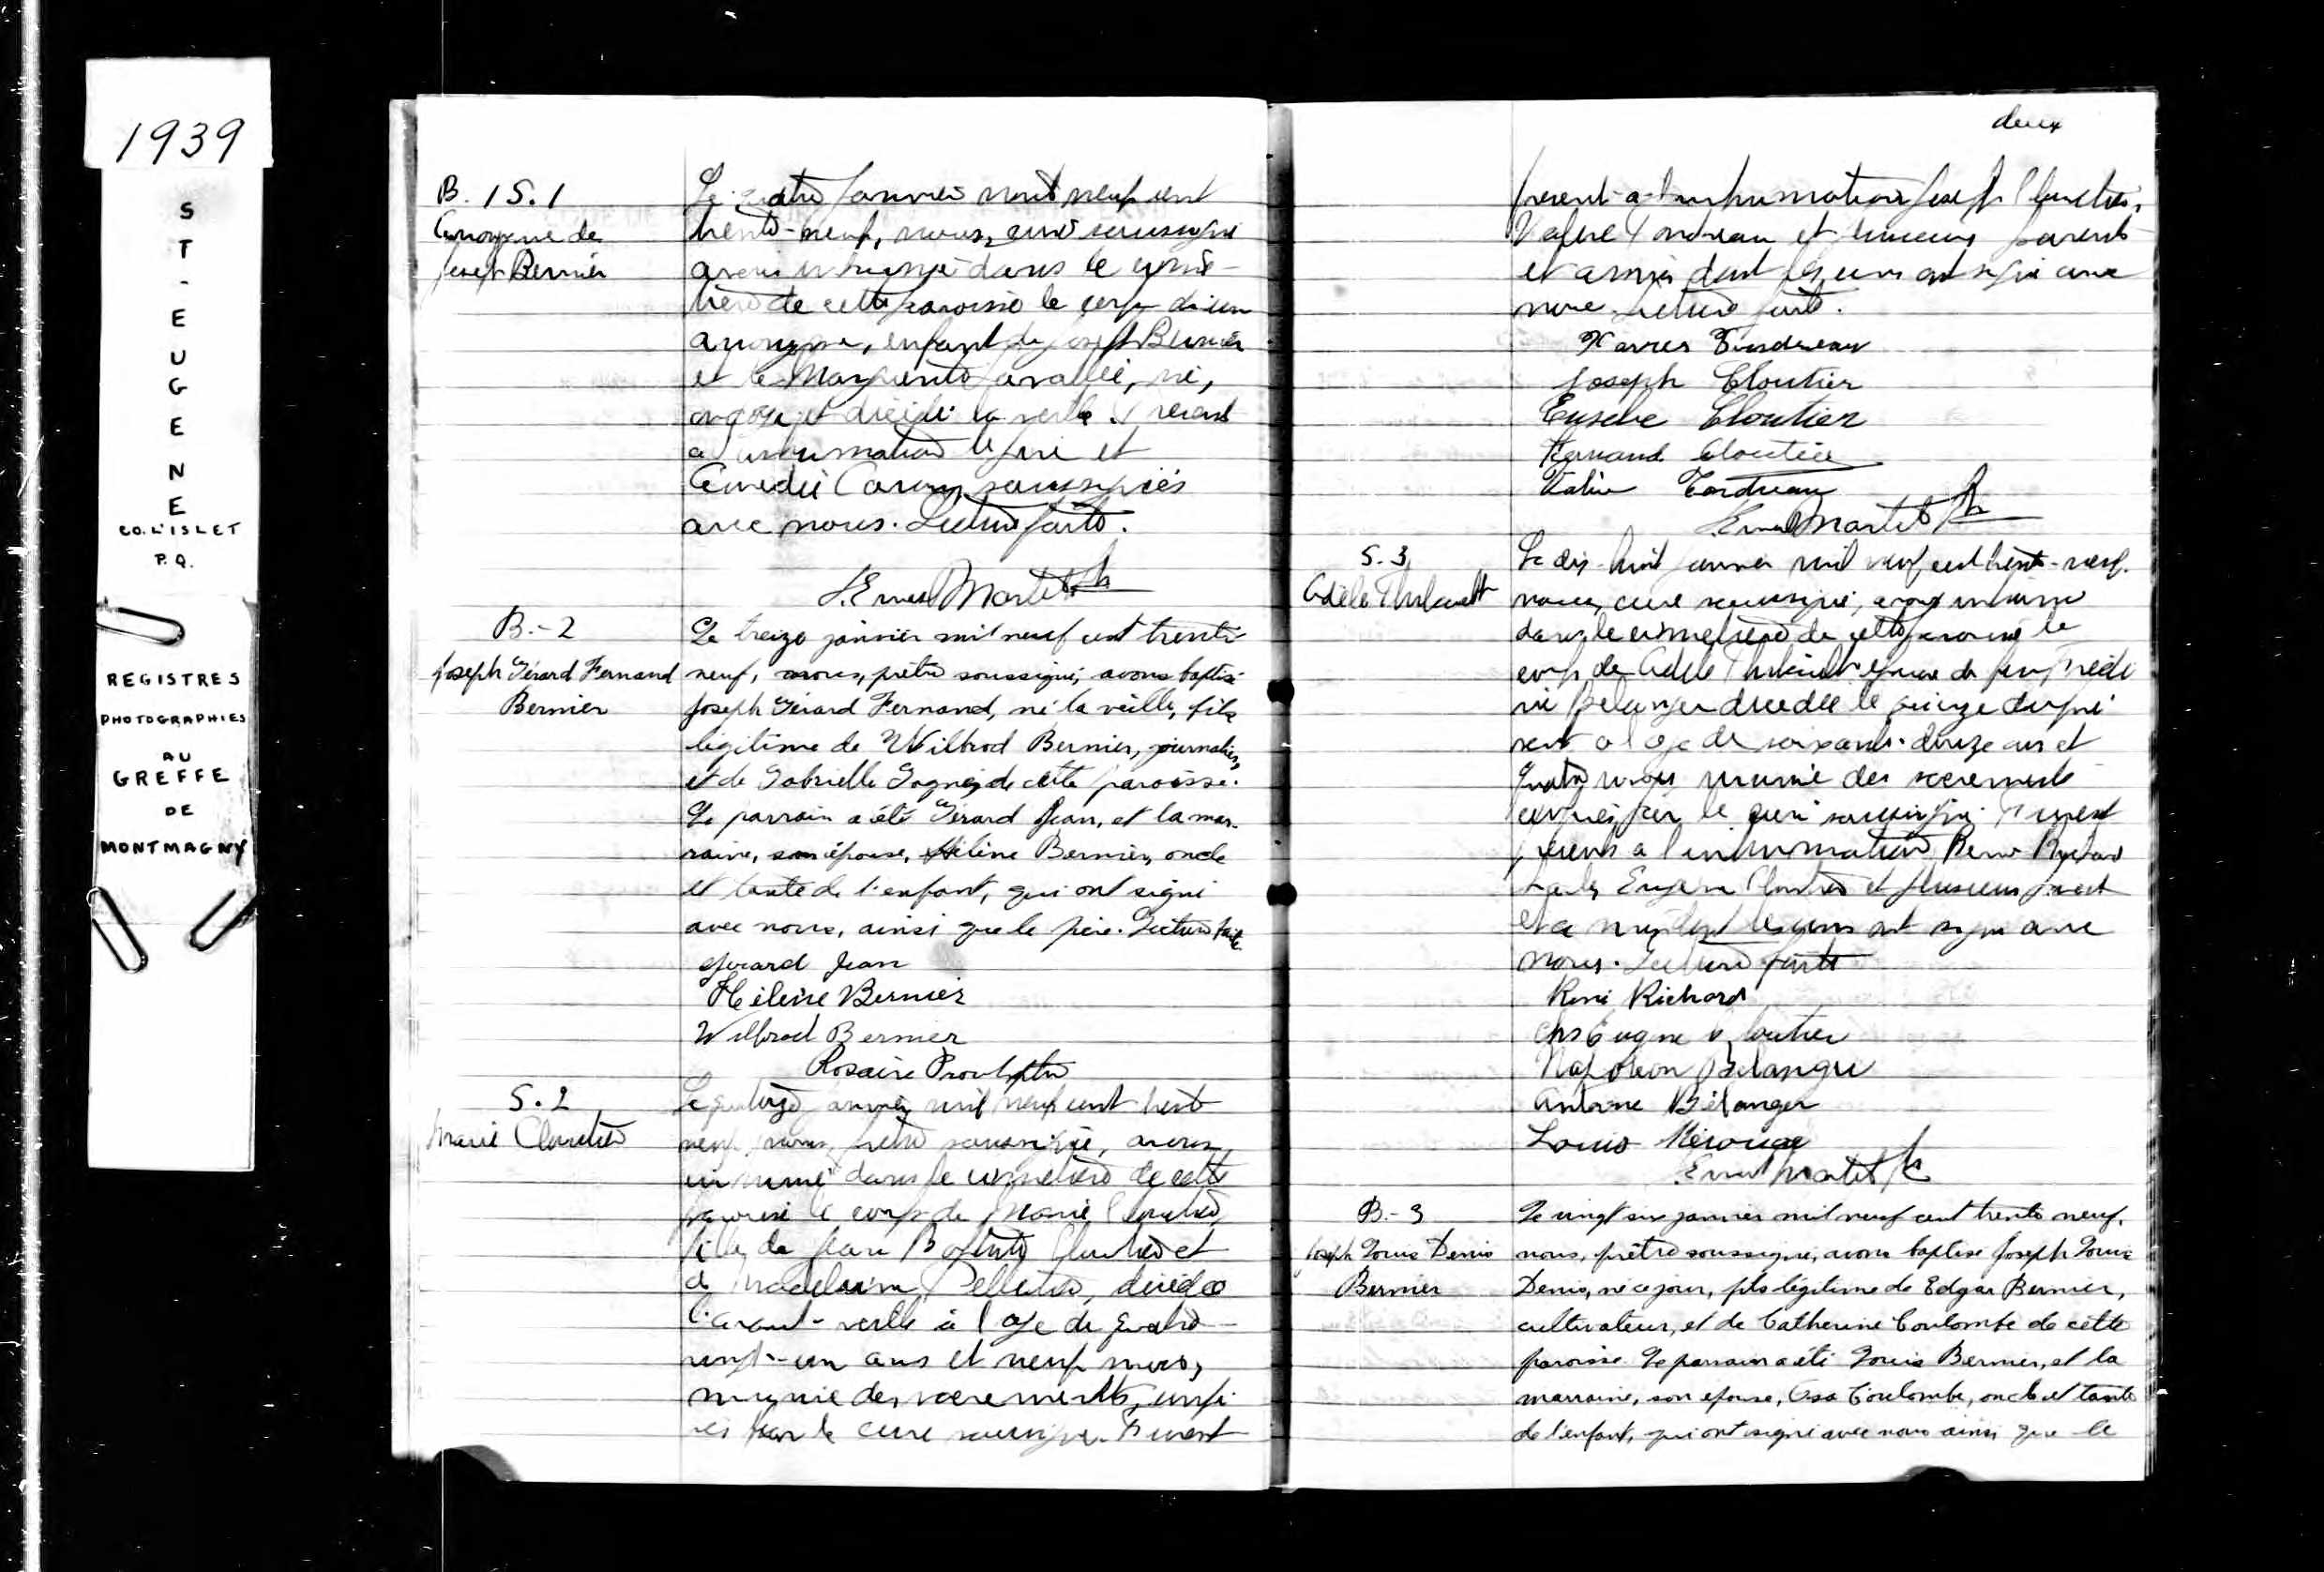 1939
ST-EUGENE
CO. L'ISLET
P.Q.
REGISTRES
PHOTOGRAPHIES
AU
GREFFE
DE
MONTMAGNY
B. 1 S. 1
Anonyme de
Joseph Bernier
Le quatre janvier mil neuf cent
trente-neuf, nous, curé soussigné
avons inhumé dans le cime-
tière de cette paroisse le corps d'un
anonyme, enfant de Joseph Bernier
et de Marguerite Lavallée, né,
ondoyé et décédé la veille. Présents
à l'inhumation le père et
Amédé Caron, soussignés
avec nous. Lecture faite.
J. Ernest Martel Ptre
B.-2
Joseph Gérard Fernand
Bernier
Le treize janvier mil neuf cent trente-
neuf, nous, prêtre soussigné, avons baptisé
Joseph Gérard Fernand, né la veille, fils
légitime de Wilbrod Bernier, journalier,
et de Gabrielle Gagné, de cette paroisse.
Le parrain a été Gérard Jean, et la mar-
raine, son épouse, Hélène Bernier, oncle
et tante de l'enfant, qui ont signé
avec nous, ainsi que le père. Lecture faite
Gérard Jean
Hélène Bernier
Wilbrod Bernier
Rosaire Proulx ptre
S. 2
Marie Cloutier
Le quatorze janvier mil neuf cent trente
neuf, nous, prêtre soussigné, avons
inhumé dans le cimetière de cette
paroisse le corps de Marie Cloutier,
fille de Jean Baptiste Cloutier et
de Madeleine Pelletier, décédée
l'avant-veille à l'âge de quatre-
vingt-un ans et neuf mois,
munie des sacrements, confé-
rés par le curé soussigné. Furent
deux
présents à l'inhumation Joseph Cloutier,
Valère Tondreau et plusieurs parents
et amis dont les uns ont signé avec
nous. Lecture faite.
Xavier Tondreau
Joseph Cloutier
Eusèbe Cloutier
Fernand Cloutier
Valère Tondreau
J. Ernest Martel Ptre
S. 3
Adèle Thibault
Le dix-huit janvier mil neuf cent trente-neuf,
nous, curé soussigné, avons inhumé
dans le cimetière de cette paroisse le
corps de Adèle Thibault épouse de feu
Bélanger décédée le quinze du pré-
sent à l'âge de soixante-douze ans et
quatre mois munie des sacrements
conférés par le curé soussigné. Furent
présents à l'inhumation René Richard
Charles Eugène Cloutier et plusieurs parents
et amis dont les uns ont signé avec
nous. Lecture faite
René Richard
Chs Eugène Cloutier
Napoléon Bélanger
Antoine Bélanger
Louis
J. Ernest Martel Ptre
B.-3
Joseph Louis Denis
Bernier
Le vingt six janvier mil neuf cent trente neuf,
nous, prêtre soussigné, avons baptisé Joseph Louis
Denis, né ce jour, fils légitime de Edgar Bernier,
cultivateur, et de Catherine Coulombe de cette
paroisse. Le parrain a été Louis Bernier, et la
marraine, son épouse, Coulombe, oncle et tante
de l'enfant, qui ont signé avec nous ainsi que le